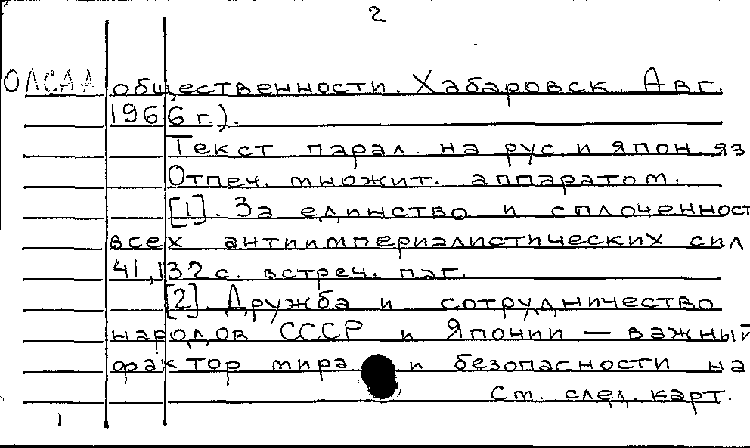 2
ОЛСАА общественности. Хабаровск Авг.
1966 г.).
Текст парал. на рус. и япон яз
Отпеч. множит. аппаратом.
[1]. За единство и сплоченност
всех антиимпериалистических сил
41,132 с. встреч. паг.
[2] Дружба и сотрудничество
народов СССР и Японии — важный
фактор мира и безопасности на
См. след. карт.